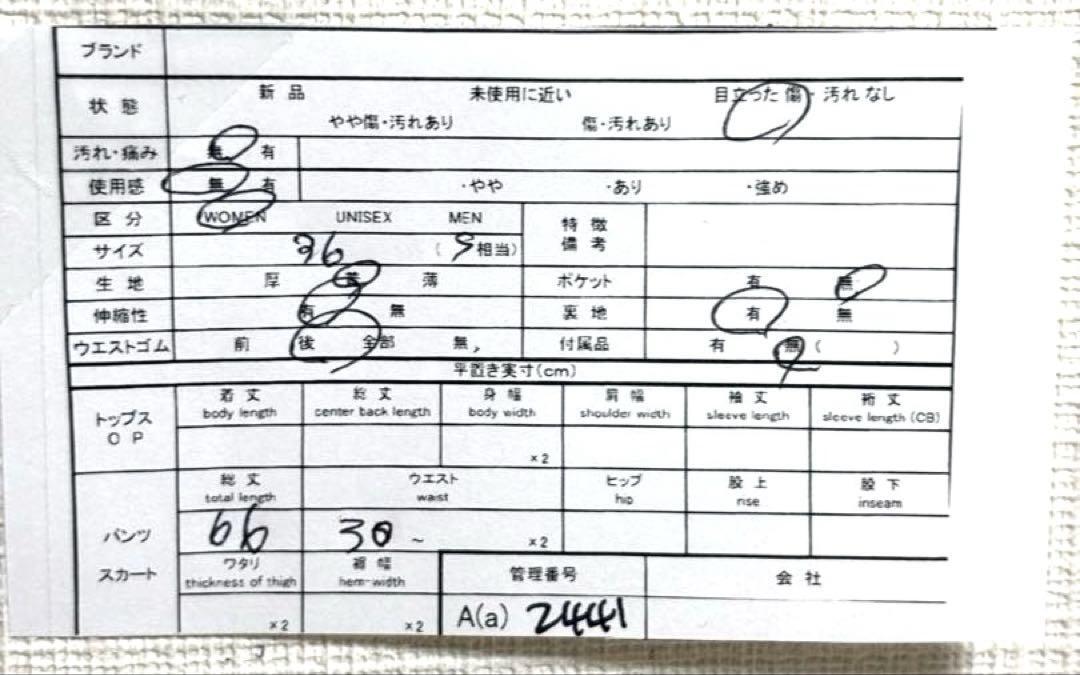 ブランド
状態 新品 未使用に近い 目立った傷・汚れなし
やや傷・汚れあり 傷・汚れあり
汚れ・痛み 無 有
使用感 無 有 ・やや ・あり ・強め
区分 WOMEN UNISEX MEN 特徴
備考
サイズ 36 (S相当)
生地 厚 普 薄 ポケット 有 無
伸縮性 有 無 裏地 有 無
ウエストゴム 前 後 全部 無, 付属品 有 無 ( )
平置き実寸(cm)
トップス
OP
着丈 総丈 身幅 肩幅 袖丈 裄丈
body length center back length body width shoulder width sleeve length sleeve length (CB)
×2
総丈 ウエスト ヒップ 股上 股下
total length waist hip rise inseam
パンツ 66 30 ~ ×2
スカート ワタリ 裾幅 管理番号 会社
thickness of thigh hem-width
×2 ×2 A(a) 2441